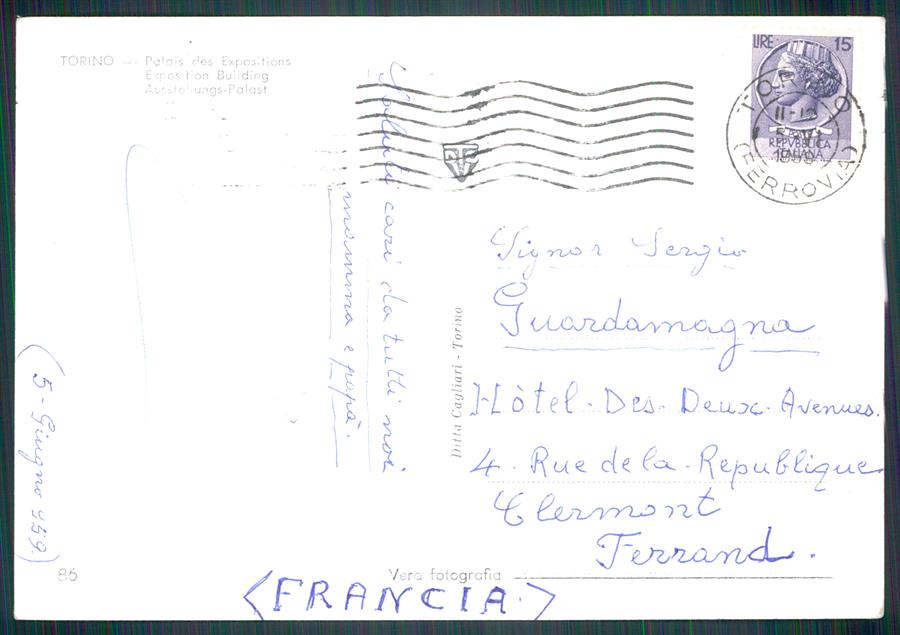 TORINO — Palais des Expositions
Exposition Building
Ausstellungs-Palast
Saluti cari da tutti noi
mamma e papà.
(5 - Giugno 959)
86
Vera fotografia
Ditta Cagliari - Torino
LIRE 15
REPVBBLICA
ITALIANA
TORINO
11-12
1959
(FERROVIA)
Signor Sergio
Guardamagna
Hòtel - Des - Deux - Avenues.
4 - Rue de la - Republique
Clermont
Ferrand.
<FRANCIA.>